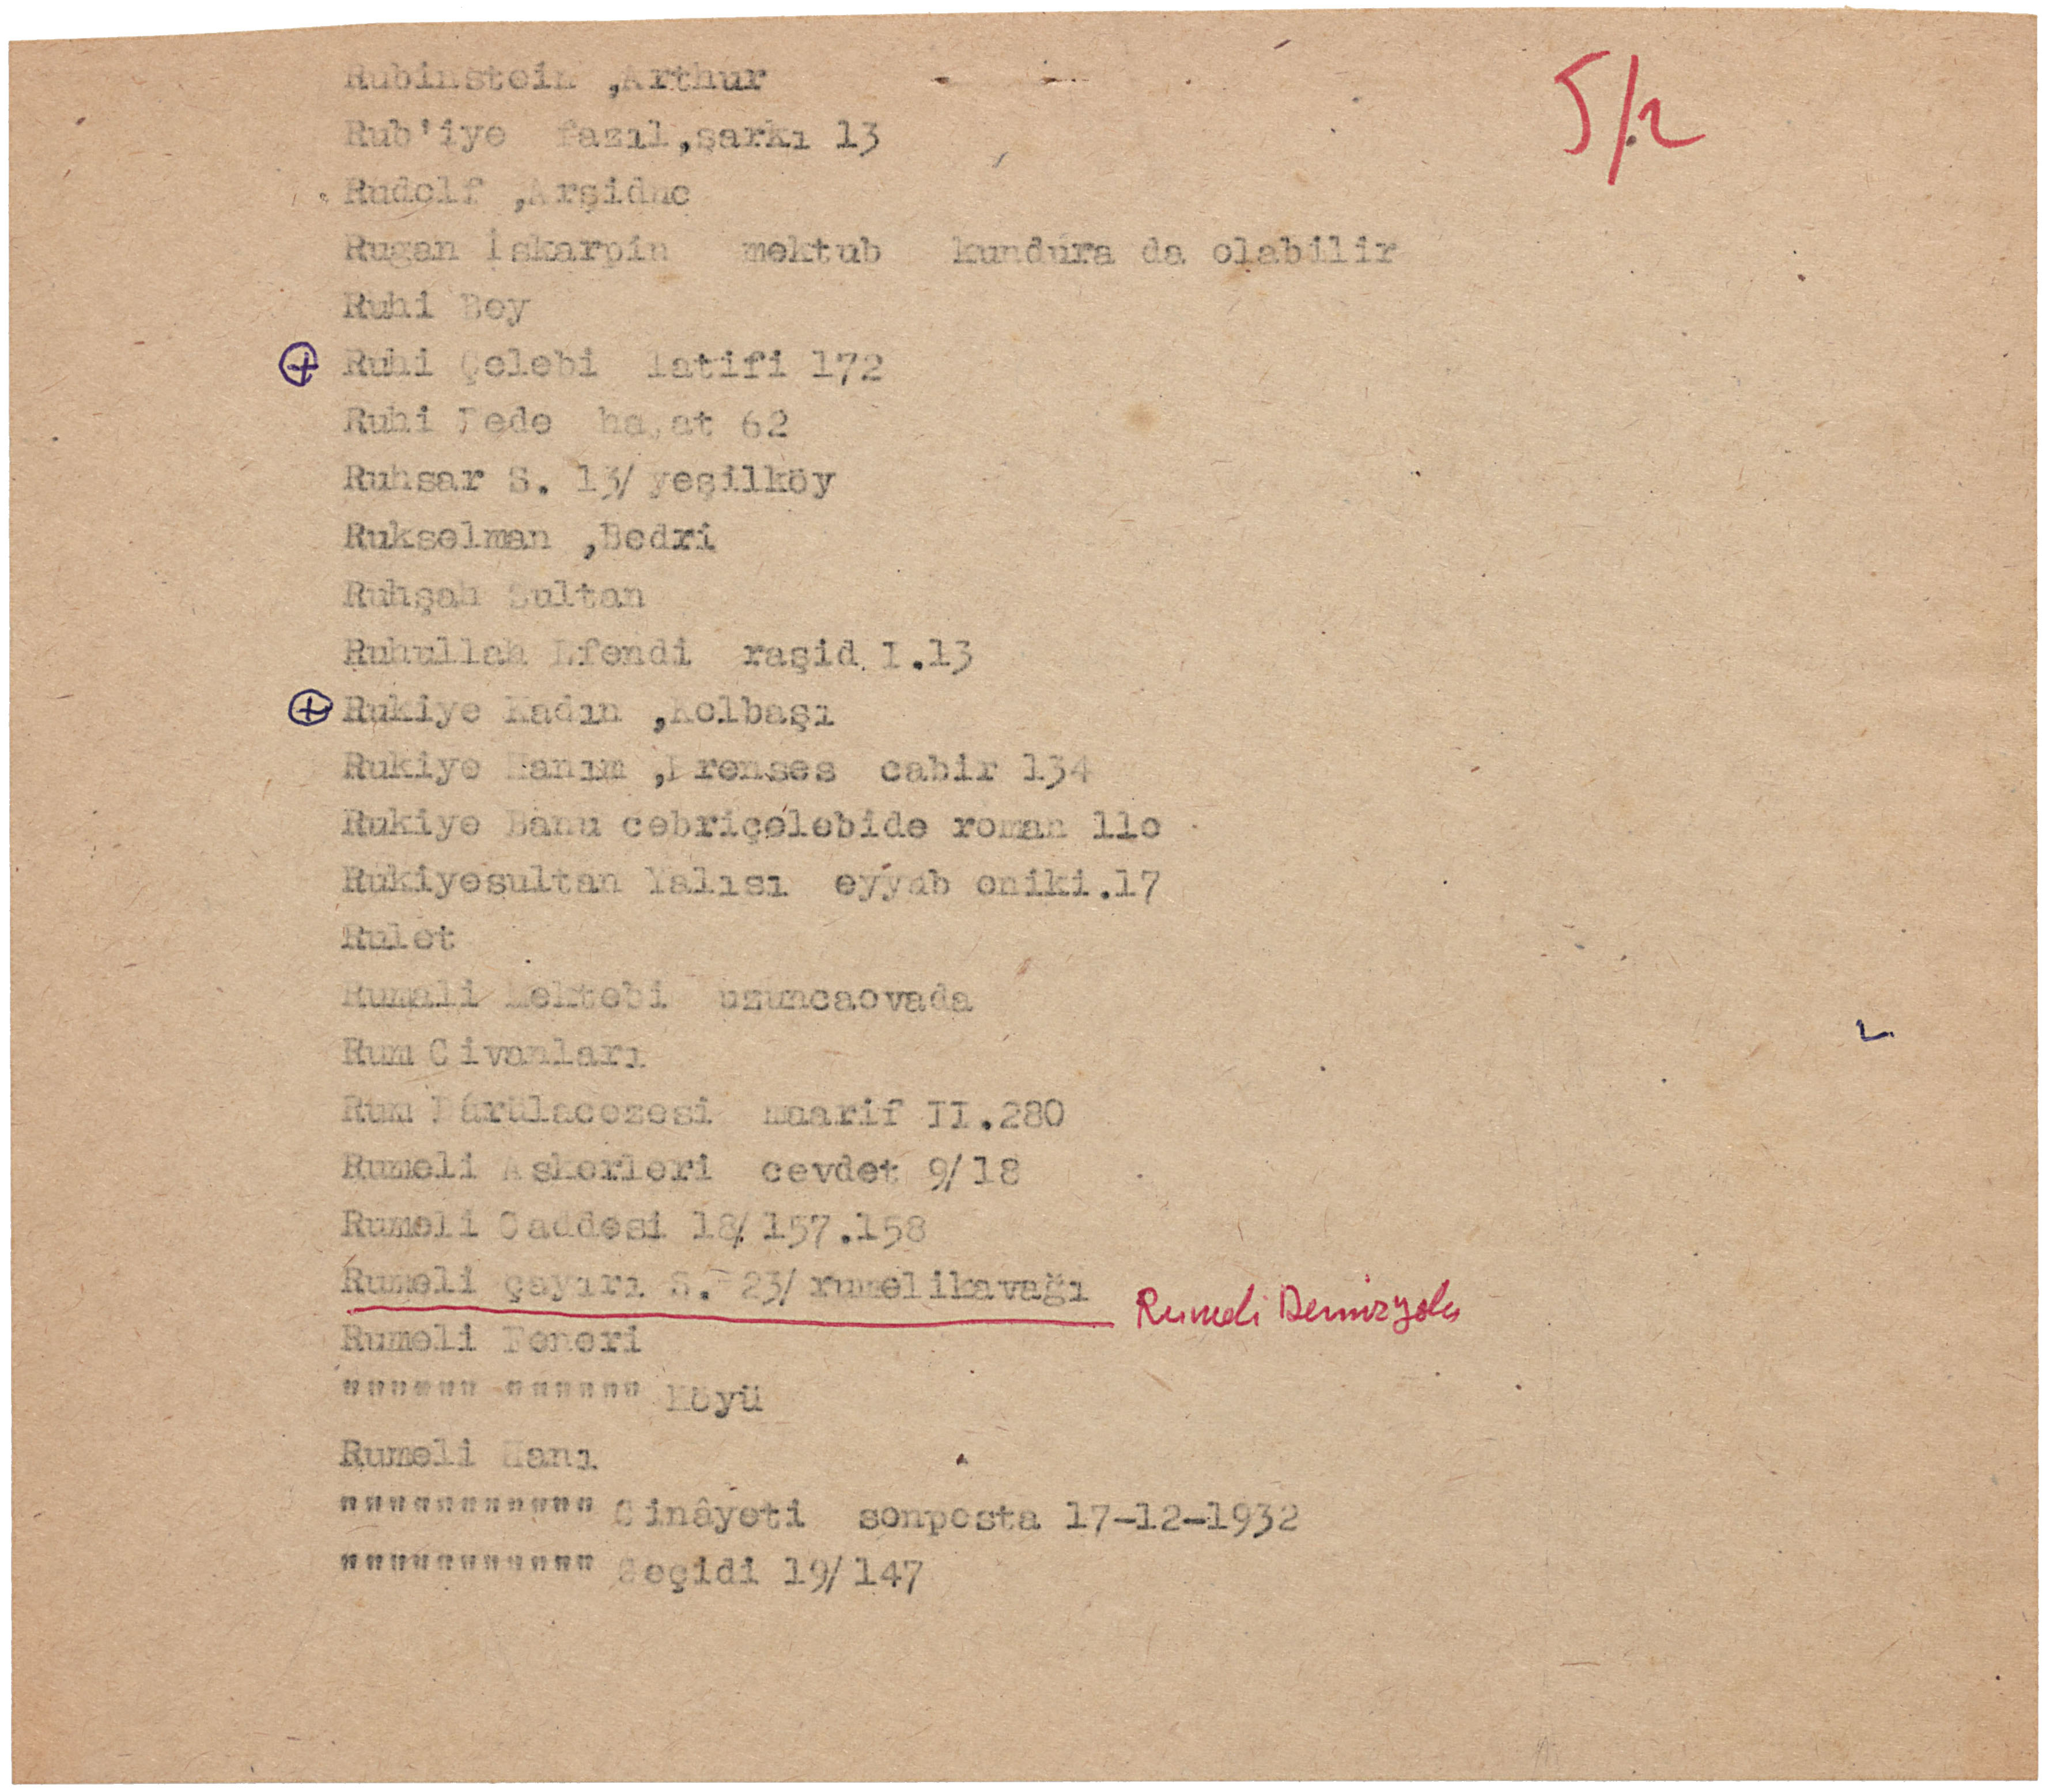 5/2
Rubinstein ,Arthur
Rub'iye fazıl,şarkı 13
Rudolf ,Arşidüc
Rugan İskarpin mektub kundura da olabilir
Ruhi Bey
Ruhi Çelebi latifi 172
Ruhi Dede hayat 62
Ruhsar S. 13/ yeşilköy
Rukselman ,Bedri
Ruhşah Sultan
Ruhullah Efendi raşid I.13
Rukiye Kadın ,Kolbaşı
Rukiye Hanım ,Prenses cabir 134
Rukiye Banu cebriçelebide roman 11o
Rukiyesultan Yalısı eyyub oniki.17
Rulet
Rumali Mektebi uzuncaovada
Rum Civanları
Rum Dárülacezesi maarif II.280
Rumeli Askerleri cevdet 9/18
Rumeli Caddesi 18/ 157.158
Rumeli çayırı S. 23/ rumelikavağı Rumeli Demiryolu
Rumeli Feneri
"""""" """""" Köyü
Rumeli Hanı
""""""""""" Cinâyeti sonposta 17-12-1932
""""""""""" Geçidi 19/147